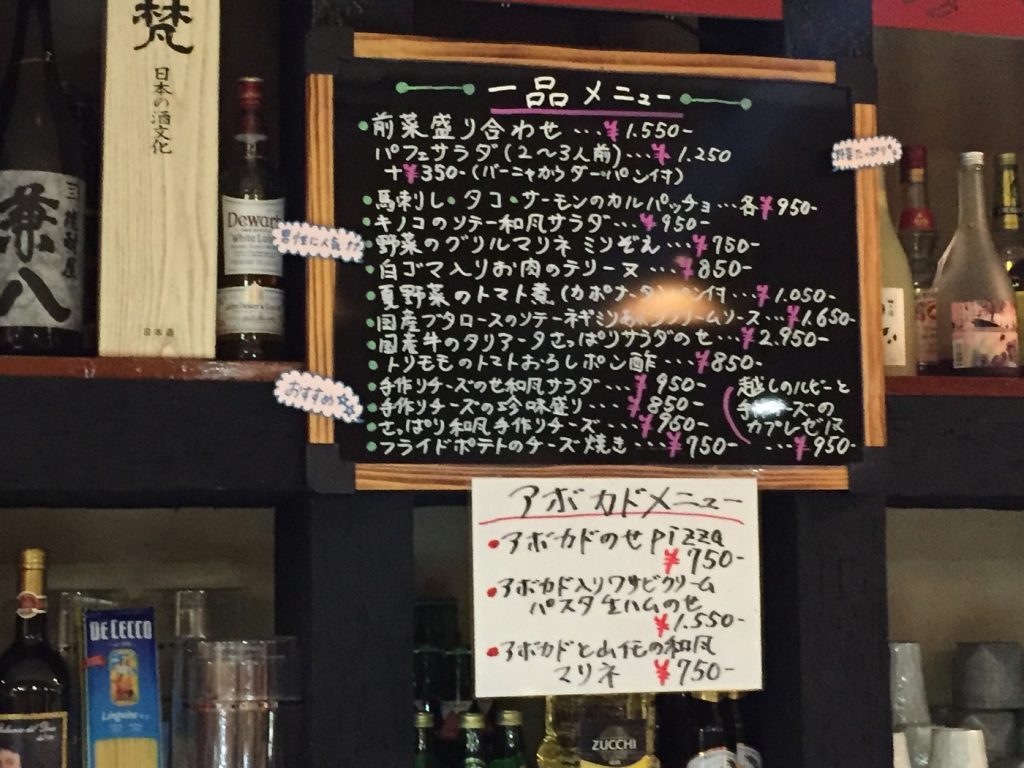 梵
日本の酒文化
日本酒
兼八
Dewar's
White Label
一品メニュー
•前菜盛り合わせ…¥1.550-
パフェサラダ(2〜3人前)…¥1.250
+¥350-(バーニャカウダーパン付)
•馬刺し・タコ・サーモンのカルパッチョ…各¥950-
•キノコのソテー和風サラダ…¥950-
•野菜のグリルマリネ ミソぞえ…¥750-
•白ゴマ入りお肉のテリーヌ…¥850-
•夏野菜のトマト煮(カポナータ)パン付…¥1.050-
•国産ブタロースのソテーネギミソあいクリームソース…¥1.650-
•国産牛のタリアータさっぱりサラダのせ…¥2.950-
•トリモモのトマトおろしポン酢…¥850-
•手作りチーズのせ和風サラダ…¥950-
•手作りチーズの珍味盛り…¥850-
•さっぱり和風手作りチーズ…¥960-
•フライドポテトのチーズ焼き…¥750-
越しのルビーと
手作りチーズの
カプレーゼ風
…¥950-
男性に人気!!
おすすめ☆☆
野菜たっぷり
アボカドメニュー
•アボカドのせpizza
¥750-
•アボカド入りワサビクリーム
パスタ生ハムのせ
¥1.550-
•アボカドと山芋の和風
マリネ ¥750-
DE CECCO
Linguine
ZUCCHI